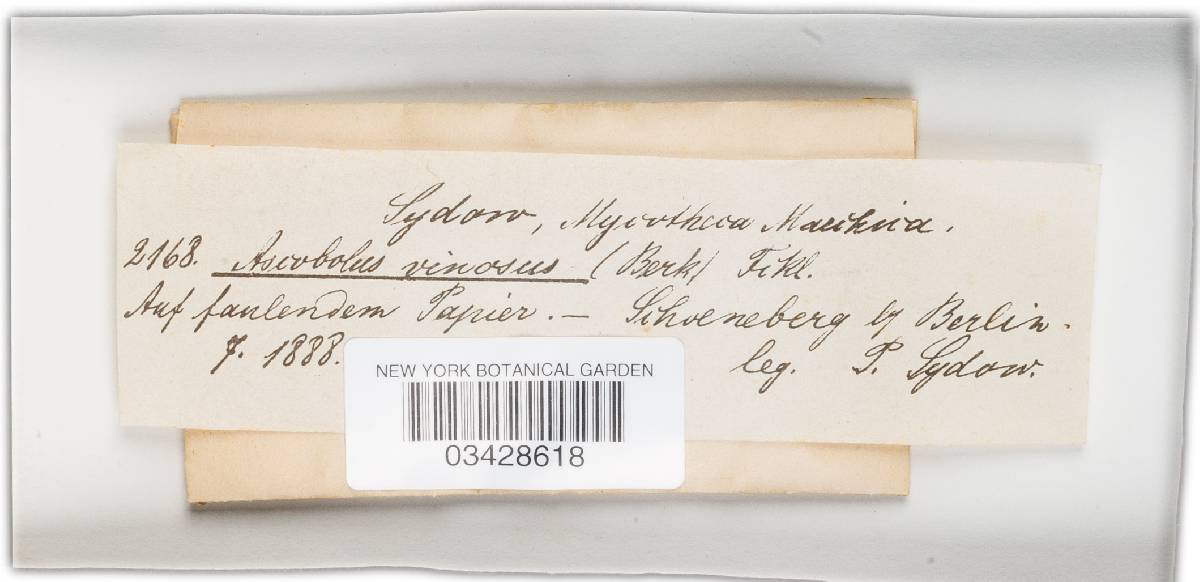 Sydow, Mycotheca Marchica.
2168. Ascobolus vinosus (Berk) Fckl.
Auf faulendem Papier. — Schoeneberg b/ Berlin.
7. 1888. leg. P. Sydow.
NEW YORK BOTANICAL GARDEN
03428618